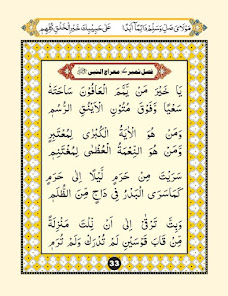 مَوْلَايَ صَلِّ وَسَلِّمْ دَائِمًا أَبَدًا عَلَىٰ حَبِيبِكَ خَيْرِ الْخَلْقِ كُلِّهِمِ
فصل نمبر ۷ معراج النبی ﷺ
يَا خَيْرَ مَنْ يَّمَّمَ الْعَافُوْنَ سَاحَتَهٗ
سَعْيًا وَّفَوْقَ مُتُوْنِ الْاَيْنُقِ الرُّسُمِ
وَمَنْ هُوَ الْاٰيَةُ الْكُبْرٰى لِمُعْتَبِرٍ
وَمَنْ هُوَ النِّعْمَةُ الْعُظْمٰى لِمُغْتَنِمِ
سَرَيْتَ مِنْ حَرَمٍ لَّيْلًا اِلٰى حَرَمٍ
كَمَا سَرَى الْبَدْرُ فِيْ دَاجٍ مِّنَ الظُّلَمِ
وَبِتَّ تَرْقٰى اِلٰى اَنْ نِلْتَ مَنْزِلَةً
مِّنْ قَابَ قَوْسَيْنِ لَمْ تُدْرَكْ وَلَمْ تُرَمِ
33